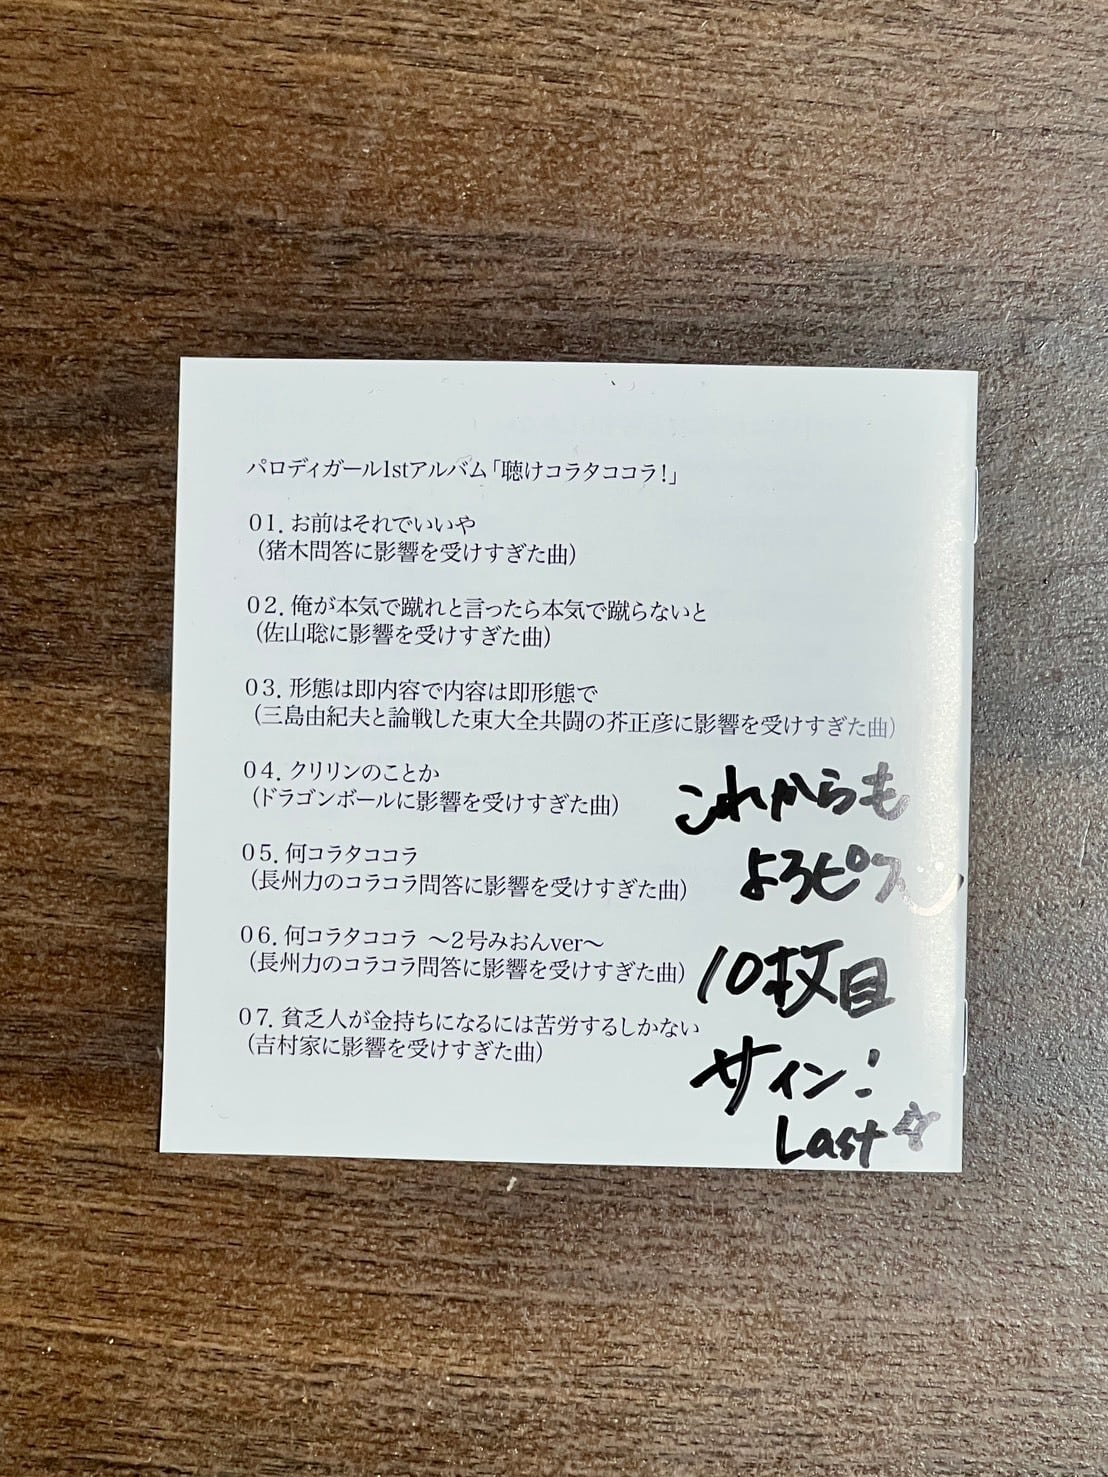 パロディガール1stアルバム「聴けコラタココラ!」
01. お前はそれでいいや
(猪木問答に影響を受けすぎた曲)
02. 俺が本気で蹴れと言ったら本気で蹴らないと
(佐山聡に影響を受けすぎた曲)
03. 形態は即内容で内容は即形態で
(三島由紀夫と論戦した東大全共闘の芥正彦に影響を受けすぎた曲)
04. クリリンのことか
(ドラゴンボールに影響を受けすぎた曲)
05. 何コラタココラ
(長州力のコラコラ問答に影響を受けすぎた曲)
06. 何コラタココラ ～2号みおんver～
(長州力のコラコラ問答に影響を受けすぎた曲)
07. 貧乏人が金持ちになるには苦労するしかない
(吉村家に影響を受けすぎた曲)
これからも
よろピス
10枚目
サイン!
Last☆